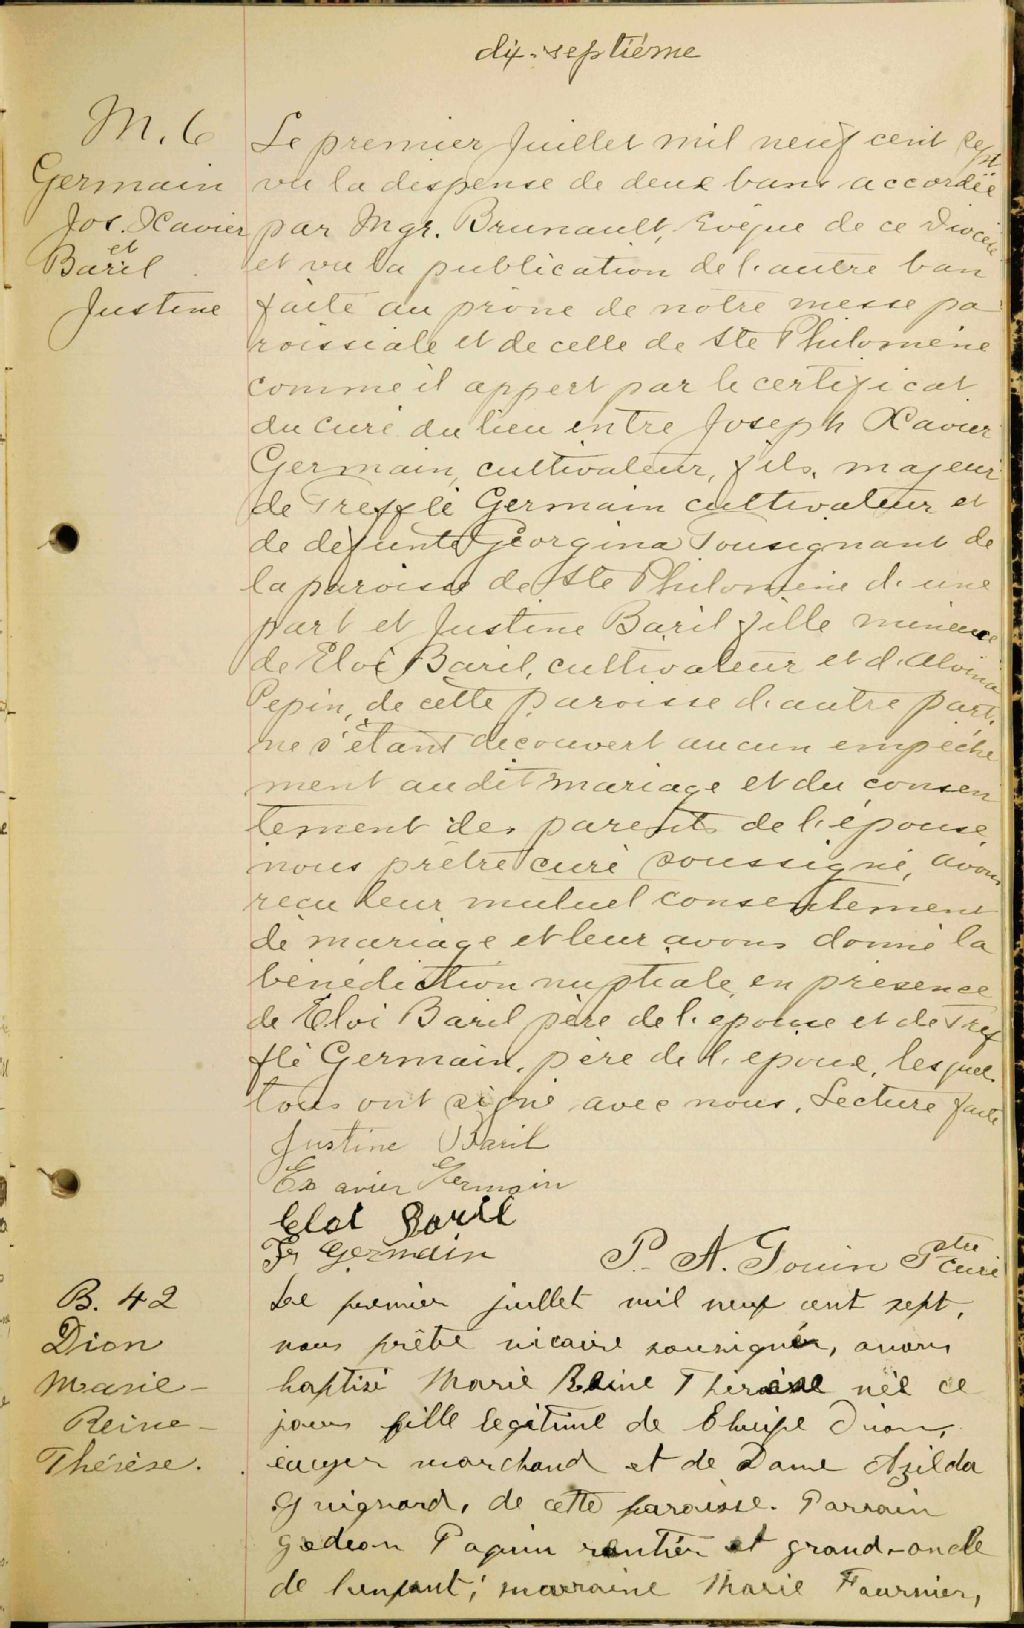 dix-septième
M. 6
Germain
Jos. Xavier
et
Baril
Justine
Le premier Juillet mil neuf cent sept
vu la dispense de deux bans accordée
par Mgr. Brunault, Evêque de ce Diocèse
et vu la publication de l'autre ban
faite au prône de notre messe pa
roissiale et de celle de Ste Philomène
comme il appert par le certificat
du curé du lieu entre Joseph Xavier
Germain, cultivateur, fils majeur
de Trefflé Germain cultivateur et
de défunte Georgina Tousignant de
la paroisse de Ste Philomène d'une
part et Justine Baril fille mineure
de Eloi Baril, cultivateur et d'Alvina
Pepin, de cette paroisse d'autre part,
ne s'étant découvert aucun empêche
ment audit mariage et du consen
tement des parents de l'épouse,
nous prêtre curé soussigné, avons
reçu leur mutuel consentement
de mariage et leur avons donné la
bénédiction nuptiale en présence
de Eloi Baril père de l'épouse et de Tref
flé Germain, père de l'époux, lesquels
tous ont signé avec nous. Lecture faite
Justine Baril
Exavier Germain
Eloi Baril
Fr Germain
P. A. Gouin Ptre curé
B. 42
Dion
Marie-
Reine-
Thérèse.
Le premier juillet mil neuf cent sept,
nous prêtre vicaire soussigné, avons
baptisé Marie Reine Thérèse née ce
jour fille legitime de Dion,
écuyer marchand et de Dame Azilda
Guignard, de cette paroisse. Parrain
Gedeon Paquin rentier et grand-oncle
de l'enfant; marraine Marie Fournier,